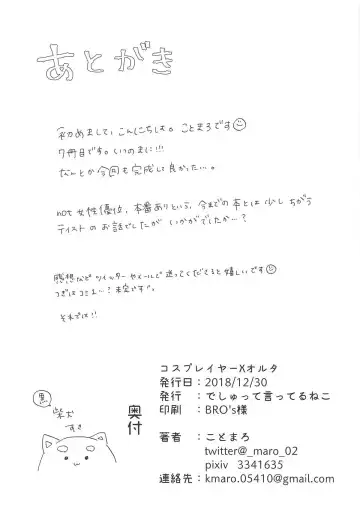 あとがき
初めまして、こんにちは。ことまろです
7冊目です。いつのまに!!!
なんとか今回も完成して良かった…。
not女性優位,本番ありという,今までの本とは少しちがう
テイストのお話でしたがいかがでしたか…?
感想などツイッターやメールで送ってくださると嬉しいです
つぎはコミ1…?未定です。
それでは!!
黒
柴犬
すき
奥付
コスプレイヤーXオルタ
発行日:2018/12/30
発行 :でしゅって言ってるねこ
印刷 :BRO's様
著者 :ことまろ
twitter@_maro_02
pixiv 3341635
連絡先:kmaro.05410@gmail.com